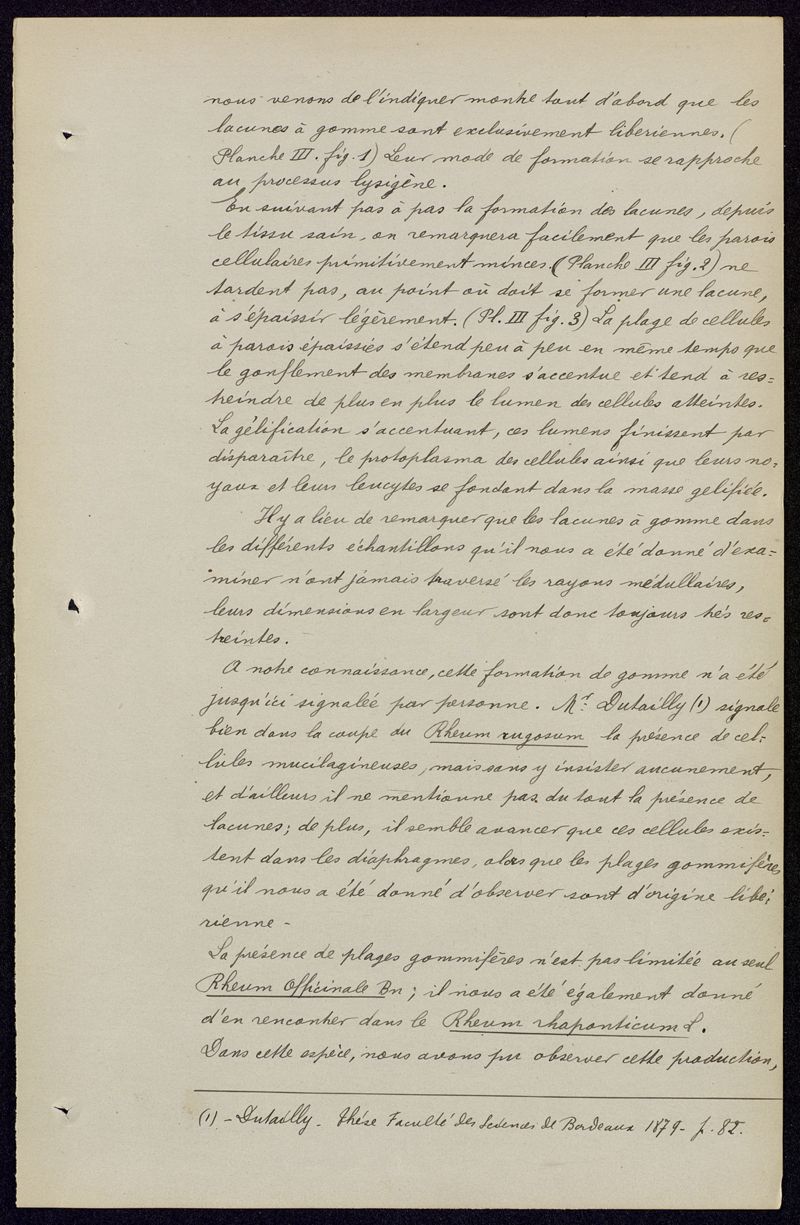 nous venons de l'indiquer montre tout d'abord que les
lacunes à gomme sont exclusivement liberiennes. (
Planche III. fig. 1) Leur mode de formation se rapproche
au processus lysigène.
En suivant pas à pas la formation des lacunes, depuis
le tissu sain, on remarquera facilement que les parois
cellulaires primitivement minces. (Planche III fig. 2) ne
tardent pas, au point où doit se former une lacune,
à s'épaissir légèrement. (Pl. III fig. 3) La plage de cellules
à parois épaissies s'étend peu à peu en même temps que
le gonflement des membranes s'accentue et tend à res=
treindre de plus en plus le lumen des cellules atteintes.
La gélification s'accentuant, ces lumens finissent par
disparaître, le protoplasma des cellules ainsi que leurs no=
yaux et leurs leucytes se fondant dans la masse gelifiée.
Il y a lieu de remarquer que les lacunes à gomme dans
les différents échantillons qu'il nous a été donné d'exa=
miner n'ont jamais traversé les rayons médullaires,
leurs dimensions en largeur sont donc toujours très res=
treintes.
A notre connaissance, cette formation de gomme n'a été
jusqu'ici signalée par personne. Mr. Dutailly (1) signale
bien dans la coupe du Rheum rugosum la présence de cel=
lules mucilagineuses, mais sans y insister aucunement,
et d'ailleurs il ne mentionne pas du tout la présence de
lacunes; de plus, il semble avancer que ces cellules exis=
tent dans les diaphragmes, alors que les plages gommifères
qu'il nous a été donné d'observer sont d'origine libé=
rienne -
La présence de plages gommifères n'est pas limitée au seul
Rheum Officinale Bn; il nous a été également donné
d'en rencontrer dans le Rheum rhaponticum L.
Dans cette espèce, nous avons pu observer cette production,
(1) - Dutailly - Thèse Faculté des Sciences de Bordeaux 1879 - p. 82.